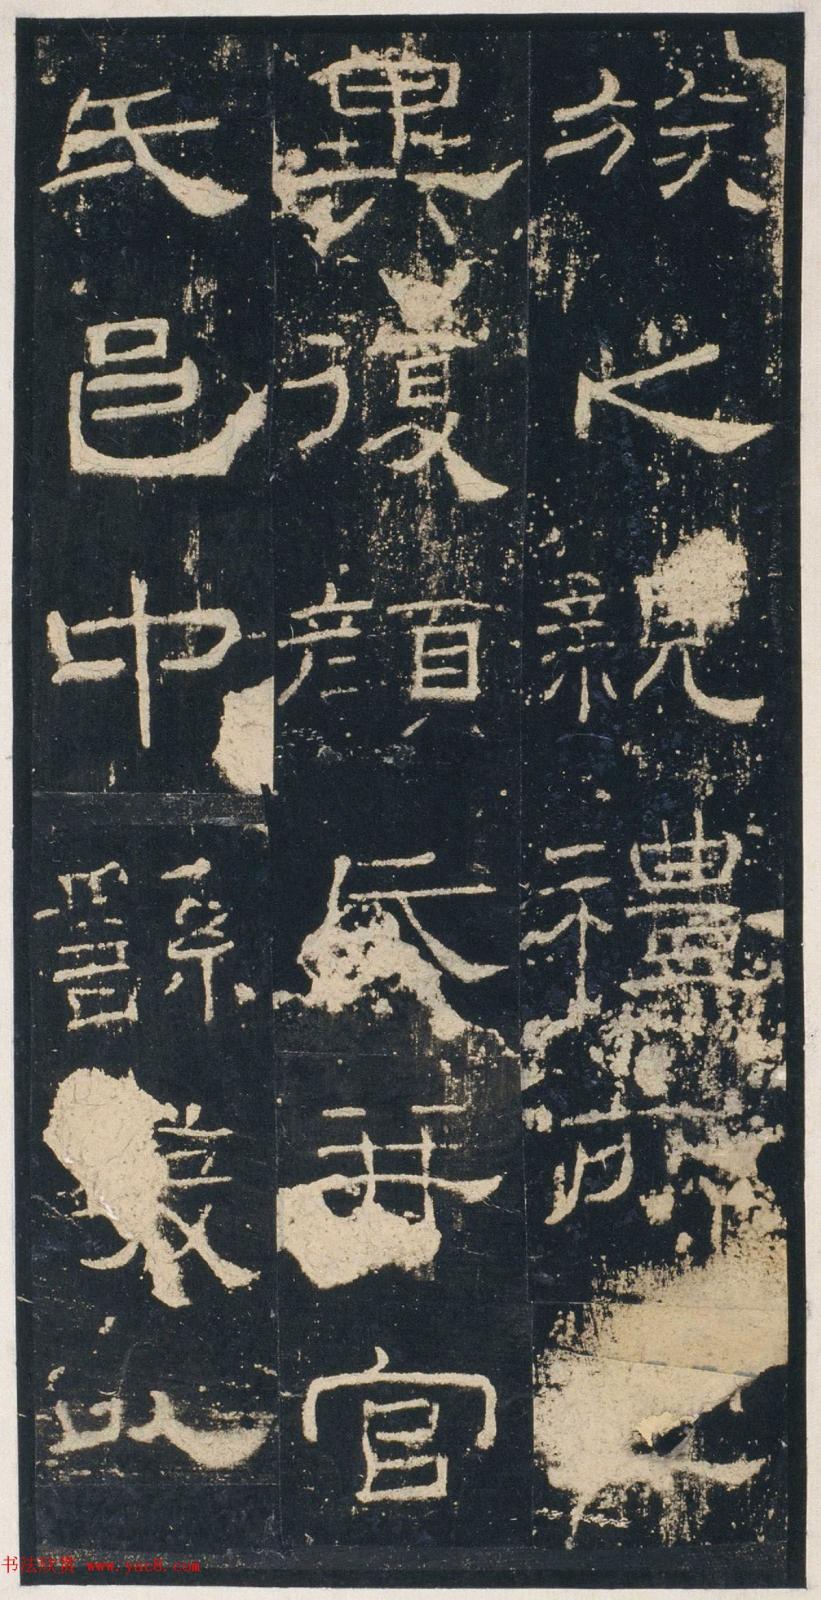 族之親禮所
異復顏氏并官
氏邑中繇發以
书法欣赏 www.yac8.com